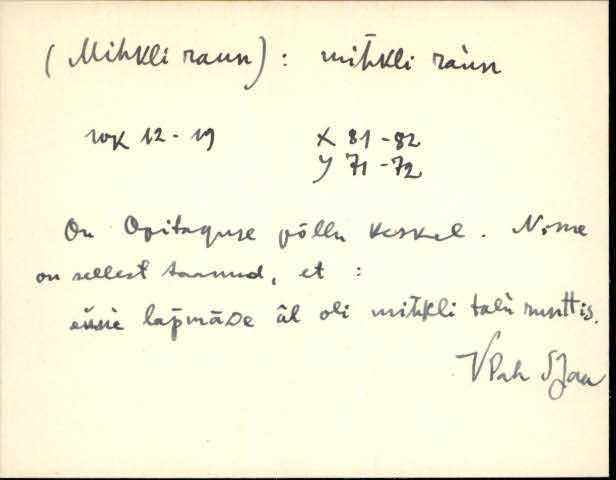 (Mihkli raun): mihkli ràun
WK 12-19 X 81-82
Y 71-72
On Opitaguse põllu keskel. Nime
on sellest saanud, et :
lapmāDe āl oli mihkli talu
VPah SJaa